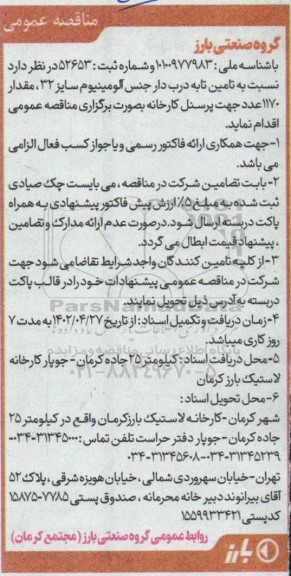 مناقصه عمومی
گروه صنعتی بارز
باشناسه ملی : ۱۰۱۰۰۹۷۷۹۸۳ وشماره ثبت : ۵۲۶۵۳ در نظر دارد
نسبت به تامین تابه درب دار جنس آلومینیوم سایز ۳۲ ، مقدار
۱۱۷۰ عدد جهت پرسنل کارخانه بصورت برگزاری مناقصه عمومی
اقدام نماید.
۱-جهت همکاری ارائه فاکتور رسمی و یا جواز کسب فعال الزامی
می باشد.
۲- بابت تضامین شرکت در مناقصه ، می بایست چک صیادی
ثبت شده به مبلغ ۵٪ ارزش پیش فاکتور پیشنهادی به همراه
پاکت دربسته ارسال شود. درصورت عدم ارائه مدارک و تضامین
، پیشنهاد قیمت ابطال می گردد.
۳- از کلیه تامین کنندگان واجد شرایط تقاضا می شود جهت
شرکت در مناقصه عمومی پیشنهادات خود را در قالب پاکت
دربسته به آدرس ذیل تحویل نمایند.
۴- زمان دریافت وتکمیل اسناد: از تاریخ ۱۴۰۲/۰۴/۲۷ به مدت ۷
روز کاری میباشد.
۵- محل دریافت اسناد: کیلومتر ۲۵ جاده کرمان - جوپار کارخانه
لاستیک بارز کرمان
۶- محل تحویل اسناد:
شهر کرمان -کارخانه لاستیک بارزکرمان واقع در کیلومتر ۲۵
جاده کرمان - جوپار دفتر حراست تلفن تماس : ۰۳۴-۳۱۳۴۵۰۰۰-
۰۳۴-۳۱۳۴۵۶۰۸-۰۳۴-۳۱۳۴۵۲۳۹
تهران- خیابان سهروردی شمالی ، خیابان هویزه شرقی ، پلاک ۵۲
آقای بیرانوند دبیر خانه محرمانه ، صندوق پستی ۷۷۸۵-۱۵۸۷۵
کدپستی ۱۵۵۹۹۳۳۴۲۱
روابط عمومی گروه صنعتی بارز (مجتمع کرمان)
بارز
ParsNamadData
۰۲۱-۸۸۳۴۹۶۷۰-۵